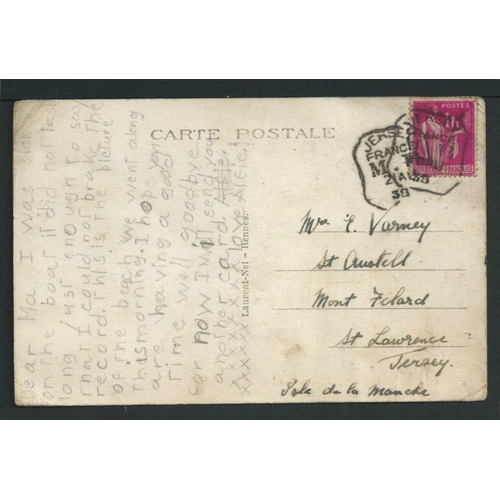 Dear Ma I was sick
on the boat it did not last
long just enough to say
that I could not brake the
record. This is the picture
of the beach we went along
this morning. I hope you
are having a good
time well goodbye
for now I will send you
another card.
xxxxxxxxx love Alfie!
CARTE POSTALE
Laurent-Nel – Rennes.
POSTES
JERSEY
FRANCE
M.
21 AU 39
39
Mrs E. Varney
St Austell
Mont Felard
St Lawrence
Jersey.
Isle de la Manche